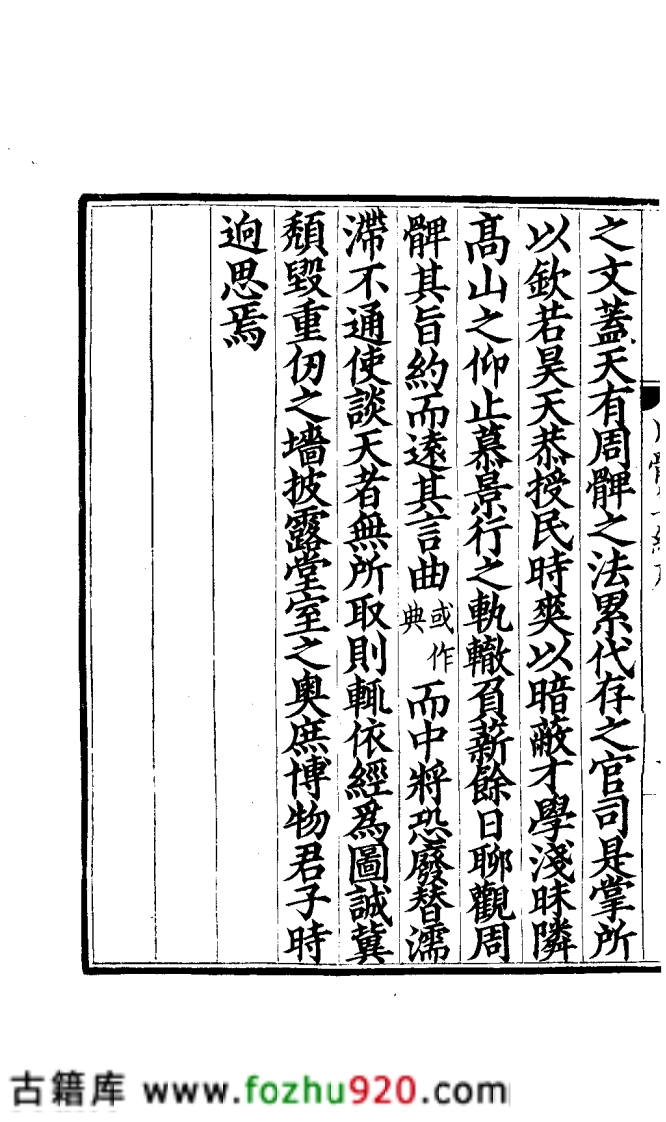 之文蓋天有周髀之法累代存之官司是掌所
以欽若昊天恭授民時爽以暗蔽才學淺昧隣
髙山之仰止慕景行之軌轍負薪餘日聊觀周
髀其旨約而遠其言曲或作典而中將恐廢替濡
滯不通使談天者無所取則輒依經為圖誠冀
頽毀重仞之墻披露堂室之奥庶博物君子時
逈思焉
古籍库 www.fozhu920.com